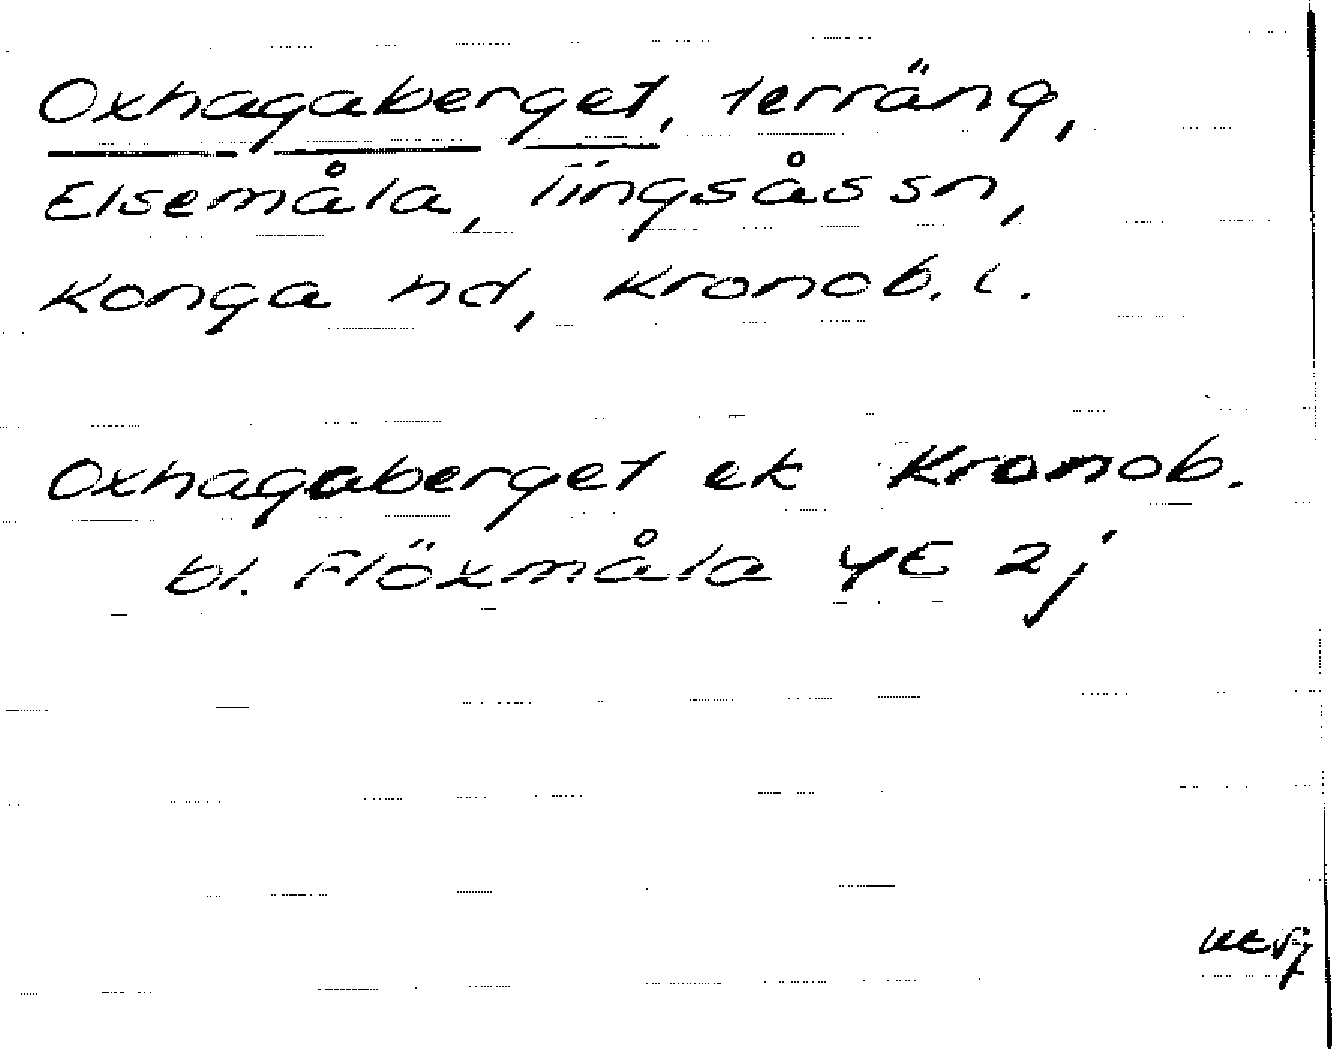 Oxhagaberget, terräng,
Elsemåla, Tingsås sn,
Konga hd, Kronob. l.
Oxhagaberget ek Kronob.
bl. Flöxmåla 4E 2j